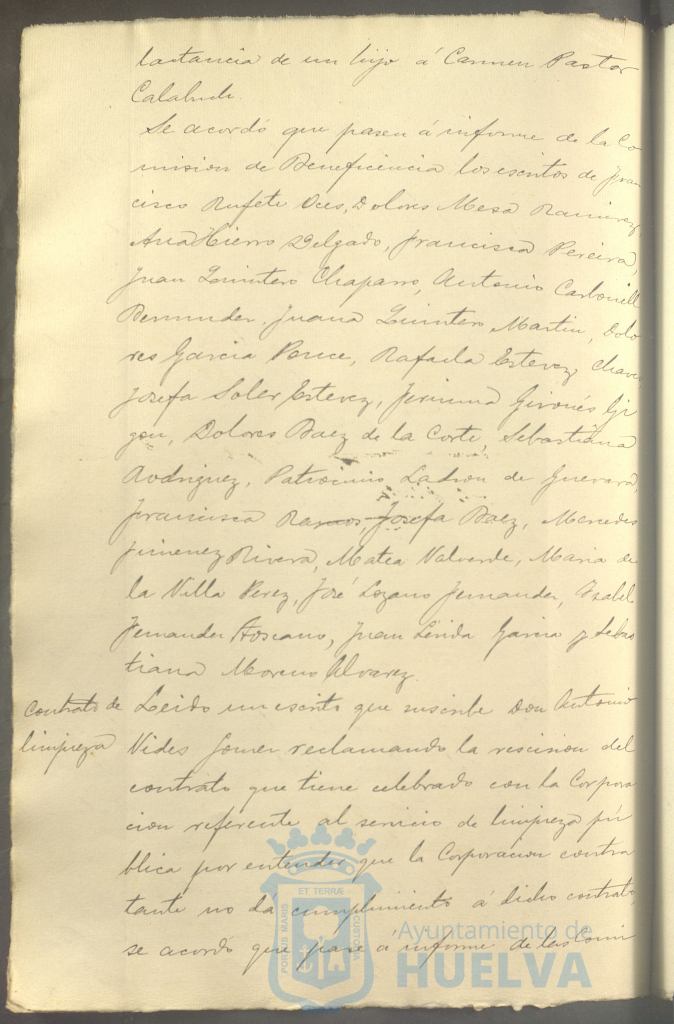 lactancia de un hijo á Carmen Pastor
Calabuch.
Se acordó que pasen á informe de la Co-
mision de Beneficencia los escritos de Fran
cisco Rufete Oces, Dolores Mesa Ramirez,
Ana Hierro Delgado, Francisca Pereira,
Juan Quintero Chaparro, Antonio Carbonell
Bermudez, Juana Quintero Martin, Dolo
res Garcia Ponce, Rafaela Estevez Chaves,
Josefa Soler Estevez, Jeronima Gironés Gi
gon, Dolores Baez de la Corte, Sebastiana
Rodriguez, Patrocinio Ladron de Guevara,
Francisca Ramos, Josefa Baez, Mercedes
Jimenez Rivera, Matea Valverde, Maria de
la Villa Perez, José Lozano Fernandez, Isabel
Fernandez Toscano, Juan Garcia y Sebas
tiana Moreno Alvarez.
Contrato de
limpieza
Leido un escrito que suscribe Don Antonio
Vides Gomez reclamando la rescision del
contrato que tiene celebrado con la Corpora
cion referente al servicio de limpieza pú
blica por entender que la Corporacion contra
tante no dá cumplimiento á dicho contrato,
se acordó que pase á informe de las Comi
PORTUS MARIS
ET TERRÆ
CUSTODIA
Ayuntamiento de
HUELVA